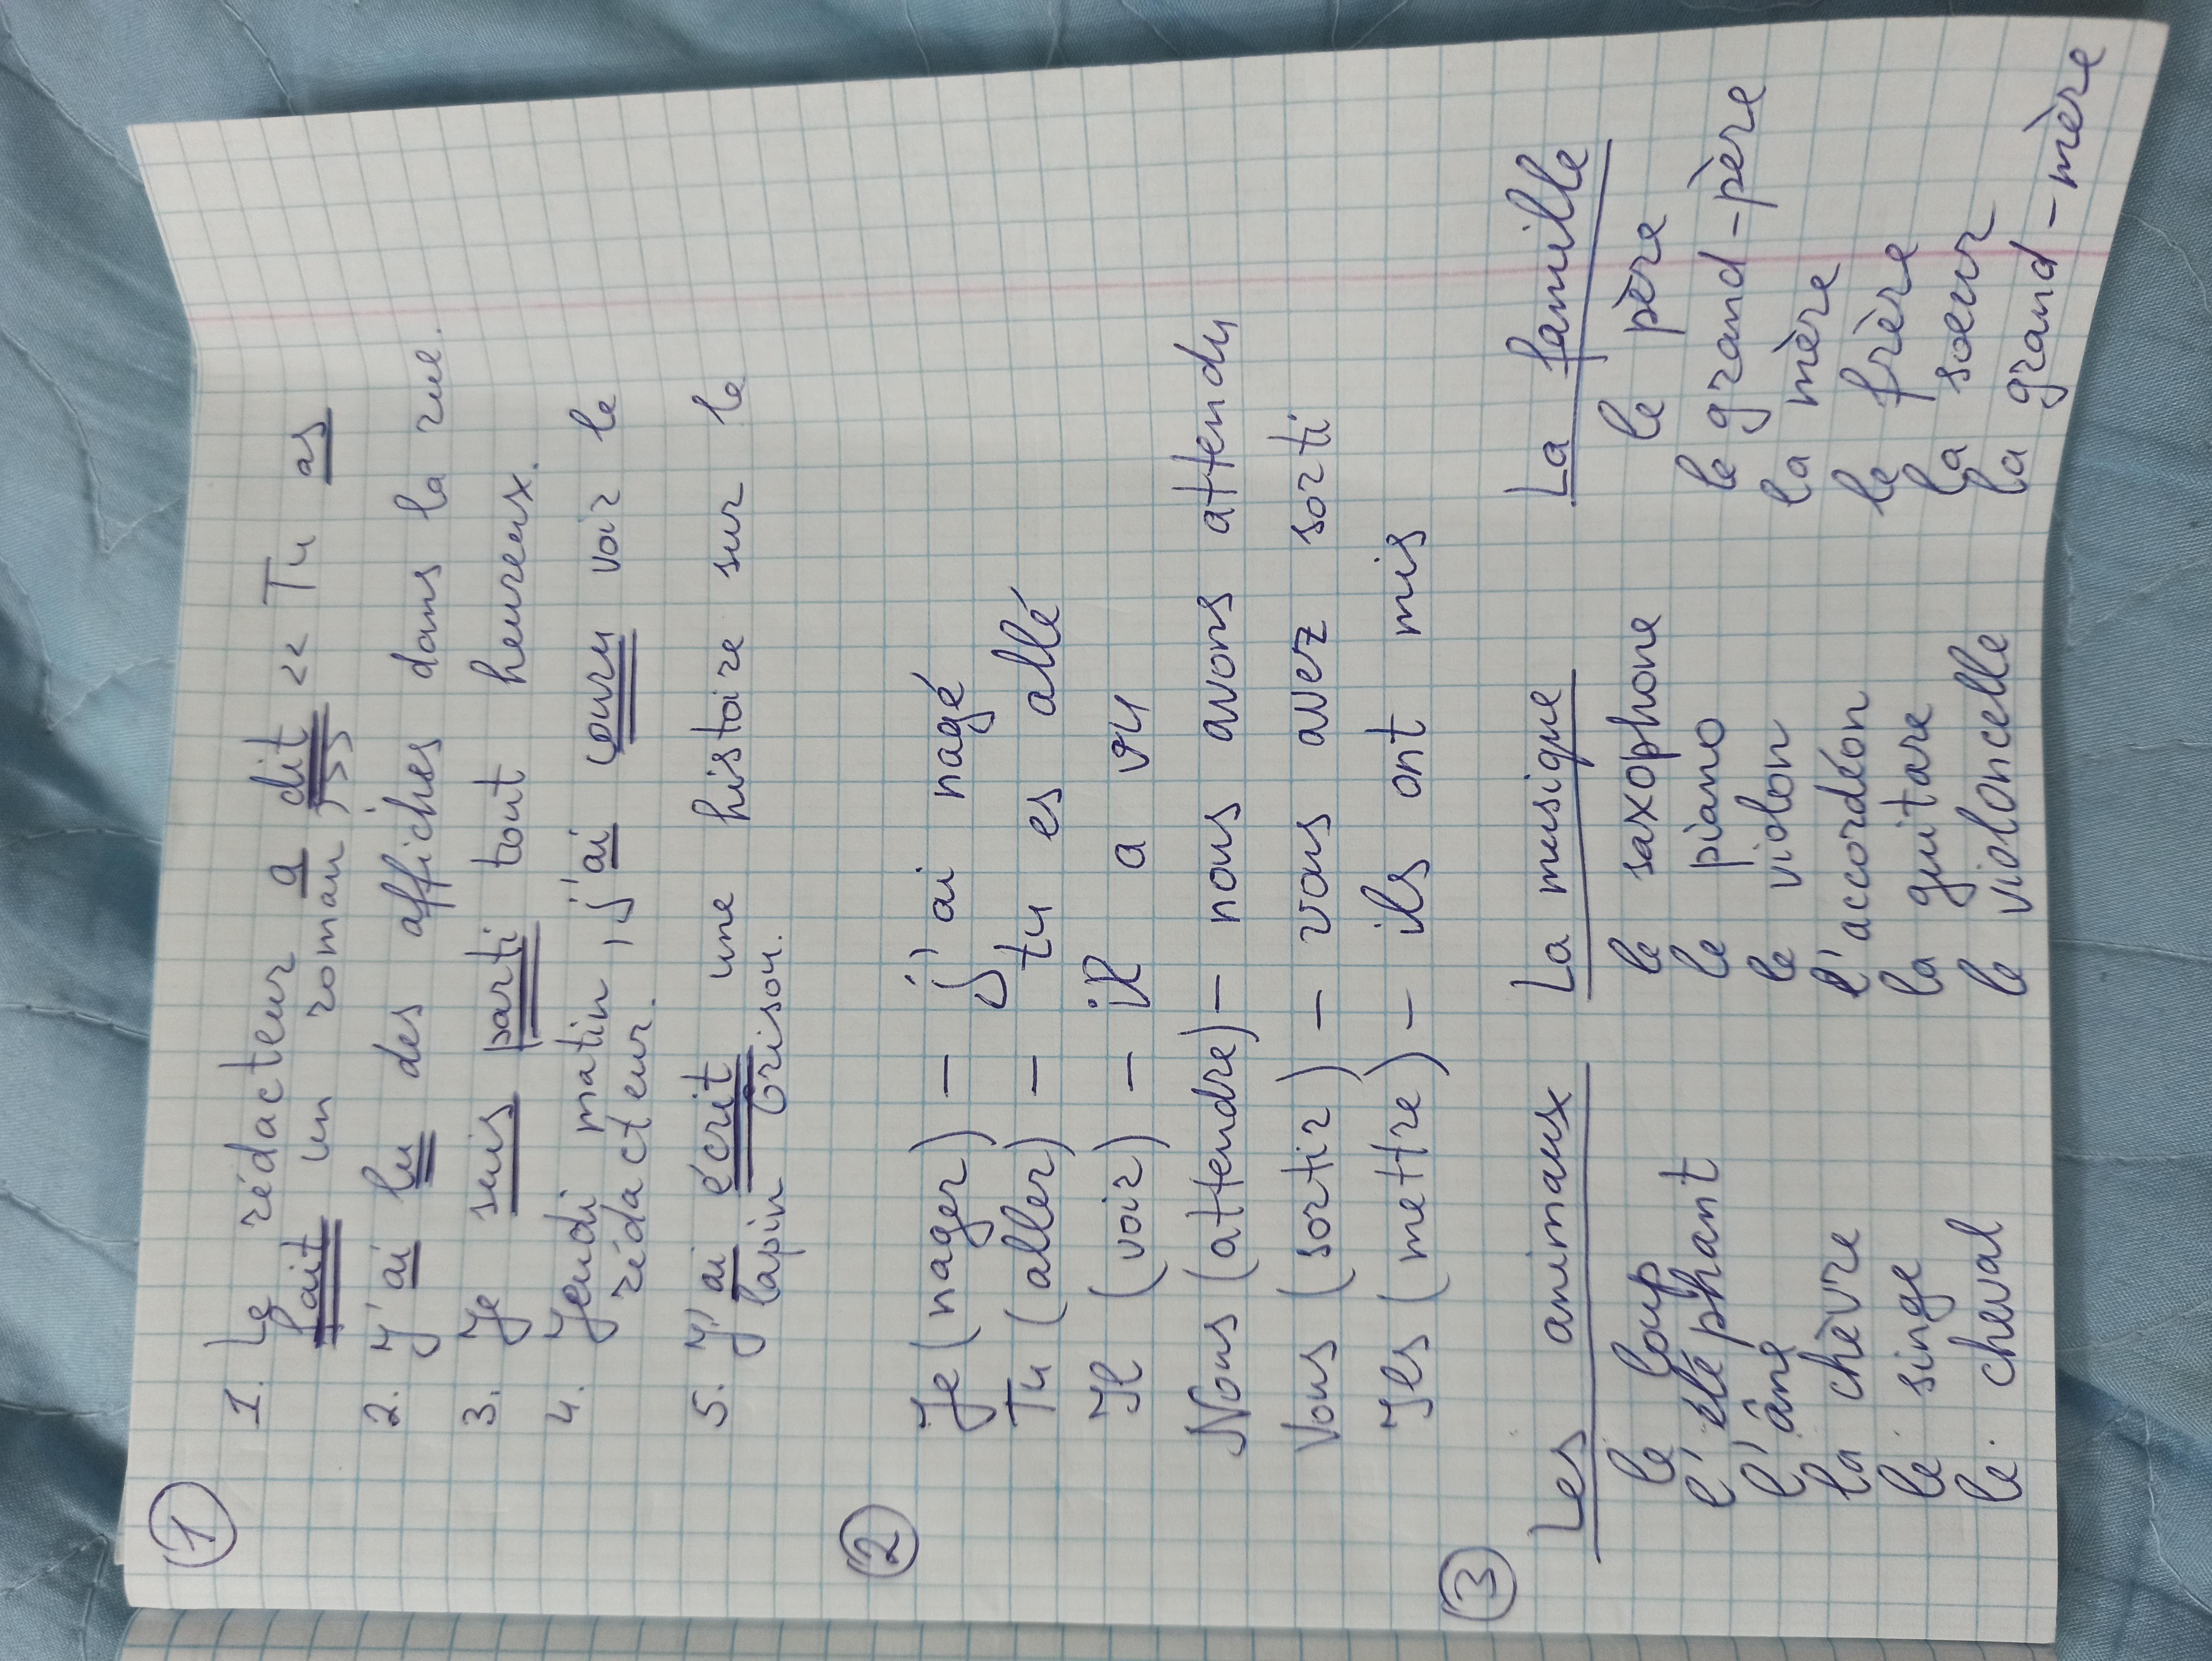 1
1. Le rédacteur a dit << Tu as
fait un roman >>
2. J'ai lu des affiches dans la rue.
3. Je suis parti tout heureux.
4. Jeudi matin, j'ai couru voir le
rédacteur.
5. J'ai écrit une histoire sur le
lapin Grisou.
2
Je (nager) – J'ai nagé
Tu (aller) – tu es allé
Il (voir) – il a vu
Nous (attendre) – nous avons attendu
Vous (sortir) – vous avez sorti
Ils (mettre) – ils ont mis
3
Les animaux
le loup
l'éléphant
l'âne
la chèvre
le singe
le cheval
La musique
le saxophone
le piano
le violon
l'accordéon
la guitare
le violoncelle
La famille
le père
le grand-père
la mère
le frère
la soeur
la grand-mère